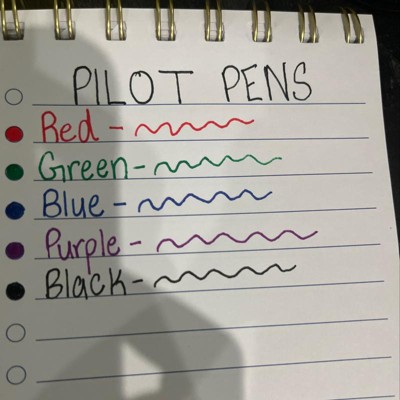 PILOT PENS
Red -
Green -
Blue -
Purple -
Black -